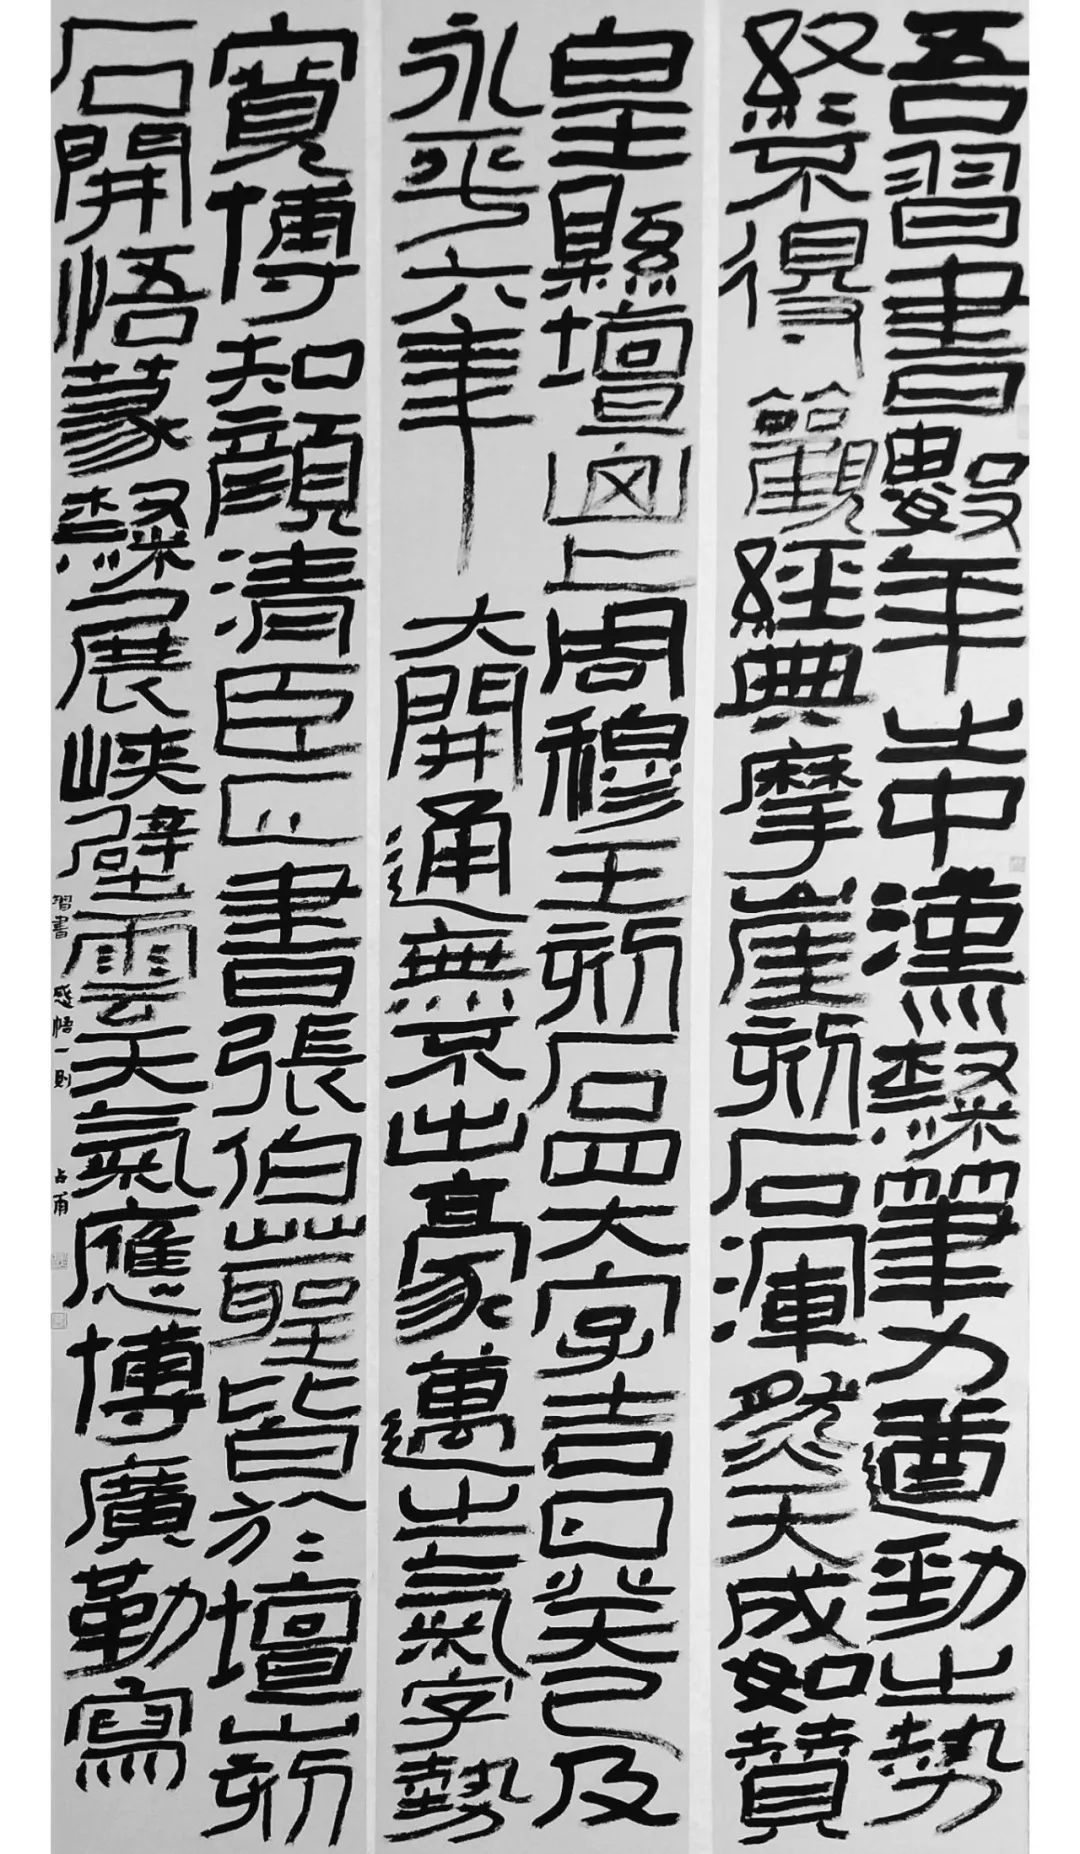 吾習書數年之中漢隸筆力遒勁之勢
終不得觀經典摩崖刻石渾然天成如贊
皇縣壇上周穆王刻石四大字吉日癸巳及
永平六年大開通無不出豪邁之氣字勢
寬博知顏清臣正書張伯聖皆於壇山刻
石開悟篆隸展峽壁雲天氣應博廣勤寫
習書感悟一則